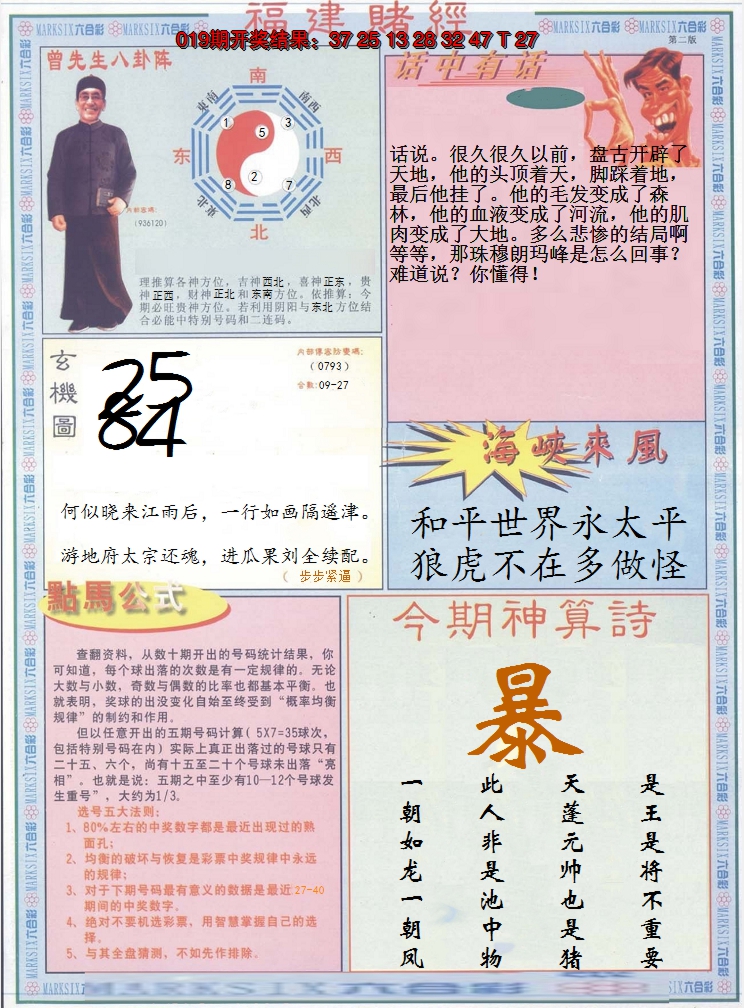 福建賭經
019期开奖结果：37 25 13 28 32 47 T 27
MARKSIX六合彩
第二版
曾先生八卦阵
南
東南
南西
1
5
3
东
西
8
2
7
東北
北西
北
內部密碼：
（936120）
理推算各神方位，吉神西北，喜神正东，贵
神正西，财神正北和东南方位。依推算：今
期必旺贵神方位。若利用阴阳与东北方位结
合必能中特别号码和二连码。
话中有话
话说。很久很久以前，盘古开辟了
天地，他的头顶着天，脚踩着地，
最后他挂了。他的毛发变成了森
林，他的血液变成了河流，他的肌
肉变成了大地。多么悲惨的结局啊
等等，那珠穆朗玛峰是怎么回事？
难道说？你懂得！
玄機圖
25
84
（0793）
合数:09-27
何似晓来江雨后，一行如画隔遥津。
游地府太宗还魂，进瓜果刘全续配。
（ 步步紧逼 ）
海峽來風
和平世界永太平
狼虎不在多做怪
點馬公式
查翻资料，从数十期开出的号码统计结果，你
可知道，每个球出落的次数是有一定规律的。无论
大数与小数，奇数与偶数的比率也都基本平衡。也
就表明，奖球的出没变化自始至终受到“概率均衡
规律”的制约和作用。
但以任意开出的五期号码计算( 5X7=35球次，
包括特别号码在内）实际上真正出落过的号球只有
二十五、六个，尚有十五至二十个号球未出落“亮
相”。也就是说：五期之中至少有10—12个号球发
生重号”，大约为1/3。
选号五大法则：
1、80%左右的中奖数字都是最近出现过的熟
面孔；
2、均衡的破坏与恢复是彩票中奖规律中永远
的规律；
3、对于下期号码最有意义的数据是最近27-40
期间的中奖数字。
4、绝对不要机选彩票，用智慧掌握自己的选
择。
5、与其全盘猜测，不如先作排除。
今期神算詩
暴
一朝如龙一朝凤
此人非是池中物
天蓬元帅也是猪
是王是将不重要